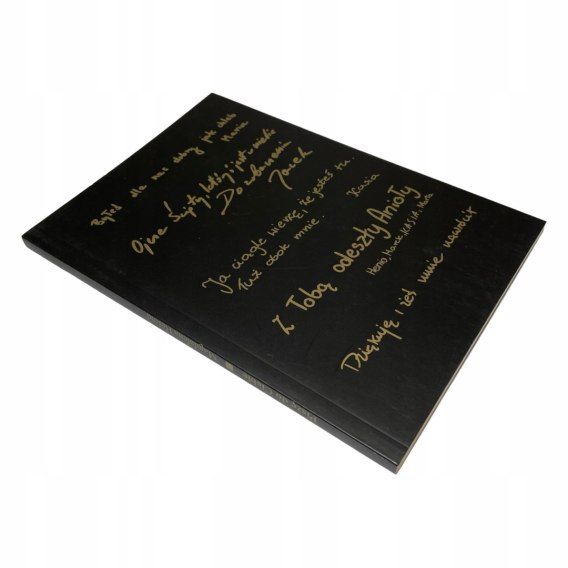 Byłeś dla nas dobry jak chleb
Maria
Ojcze Święty, byłeś i jesteś u mnie
Do zobaczenia
Jacek
Ja ciągle wierzę, że jesteś tu.
Tuż obok mnie.
Kasia
Z Tobą odeszły Anioły
Marek, KASIA,
Dziękuję i żeś mnie nawrócił